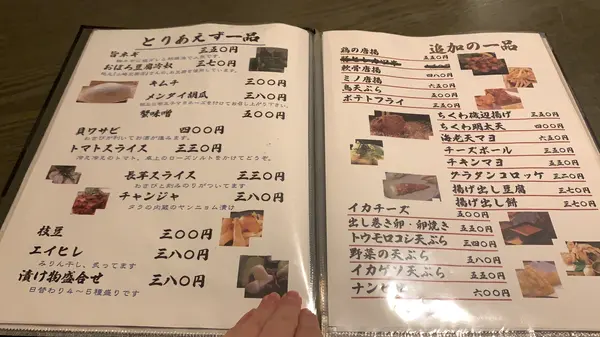 とりあえず一品
旨ネギ 三五〇円
おぼろ豆腐冷奴 三七〇円
キムチ 三〇〇円
メンタイ胡瓜 三八〇円
蟹味噌 五〇〇円
貝ワサビ 四〇〇円
わさびが利いてお酒が進みます。
トマトスライス 三三〇円
冷え冷えのトマト、卓上のローズソルトをかけてどうぞ。
長芋スライス 三三〇円
わさびと刻みのりがついてます
チャンジャ 三八〇円
タラの内臓のヤンニョム漬け
枝豆 三〇〇円
エイヒレ 三八〇円
みりん干し、炙ってます
漬け物盛合せ 三八〇円
日替わり4~5種盛りです
追加の一品
鶏の唐揚
軟骨唐揚 四八〇円
ミノ唐揚 六五〇円
鳥天ぷら 五五〇円
ポテトフライ 三八〇円
ちくわ磯辺揚げ 三五〇円
ちくわ明太天 四〇〇円
海老天マヨ 五五〇円
チーズボール 三五〇円
チキンマヨ 五五〇円
グラタンコロッケ 二五〇円
揚げ出し豆腐 三七〇円
揚げ出し餅 三七〇円
イカチーズ 五五〇円
出し巻き卵・卵焼き 五五〇円
トウモロコシ天ぷら 三五〇円
野菜の天ぷら 五五〇円
イカゲソ天ぷら 五五〇円
ナンピザ 六〇〇円